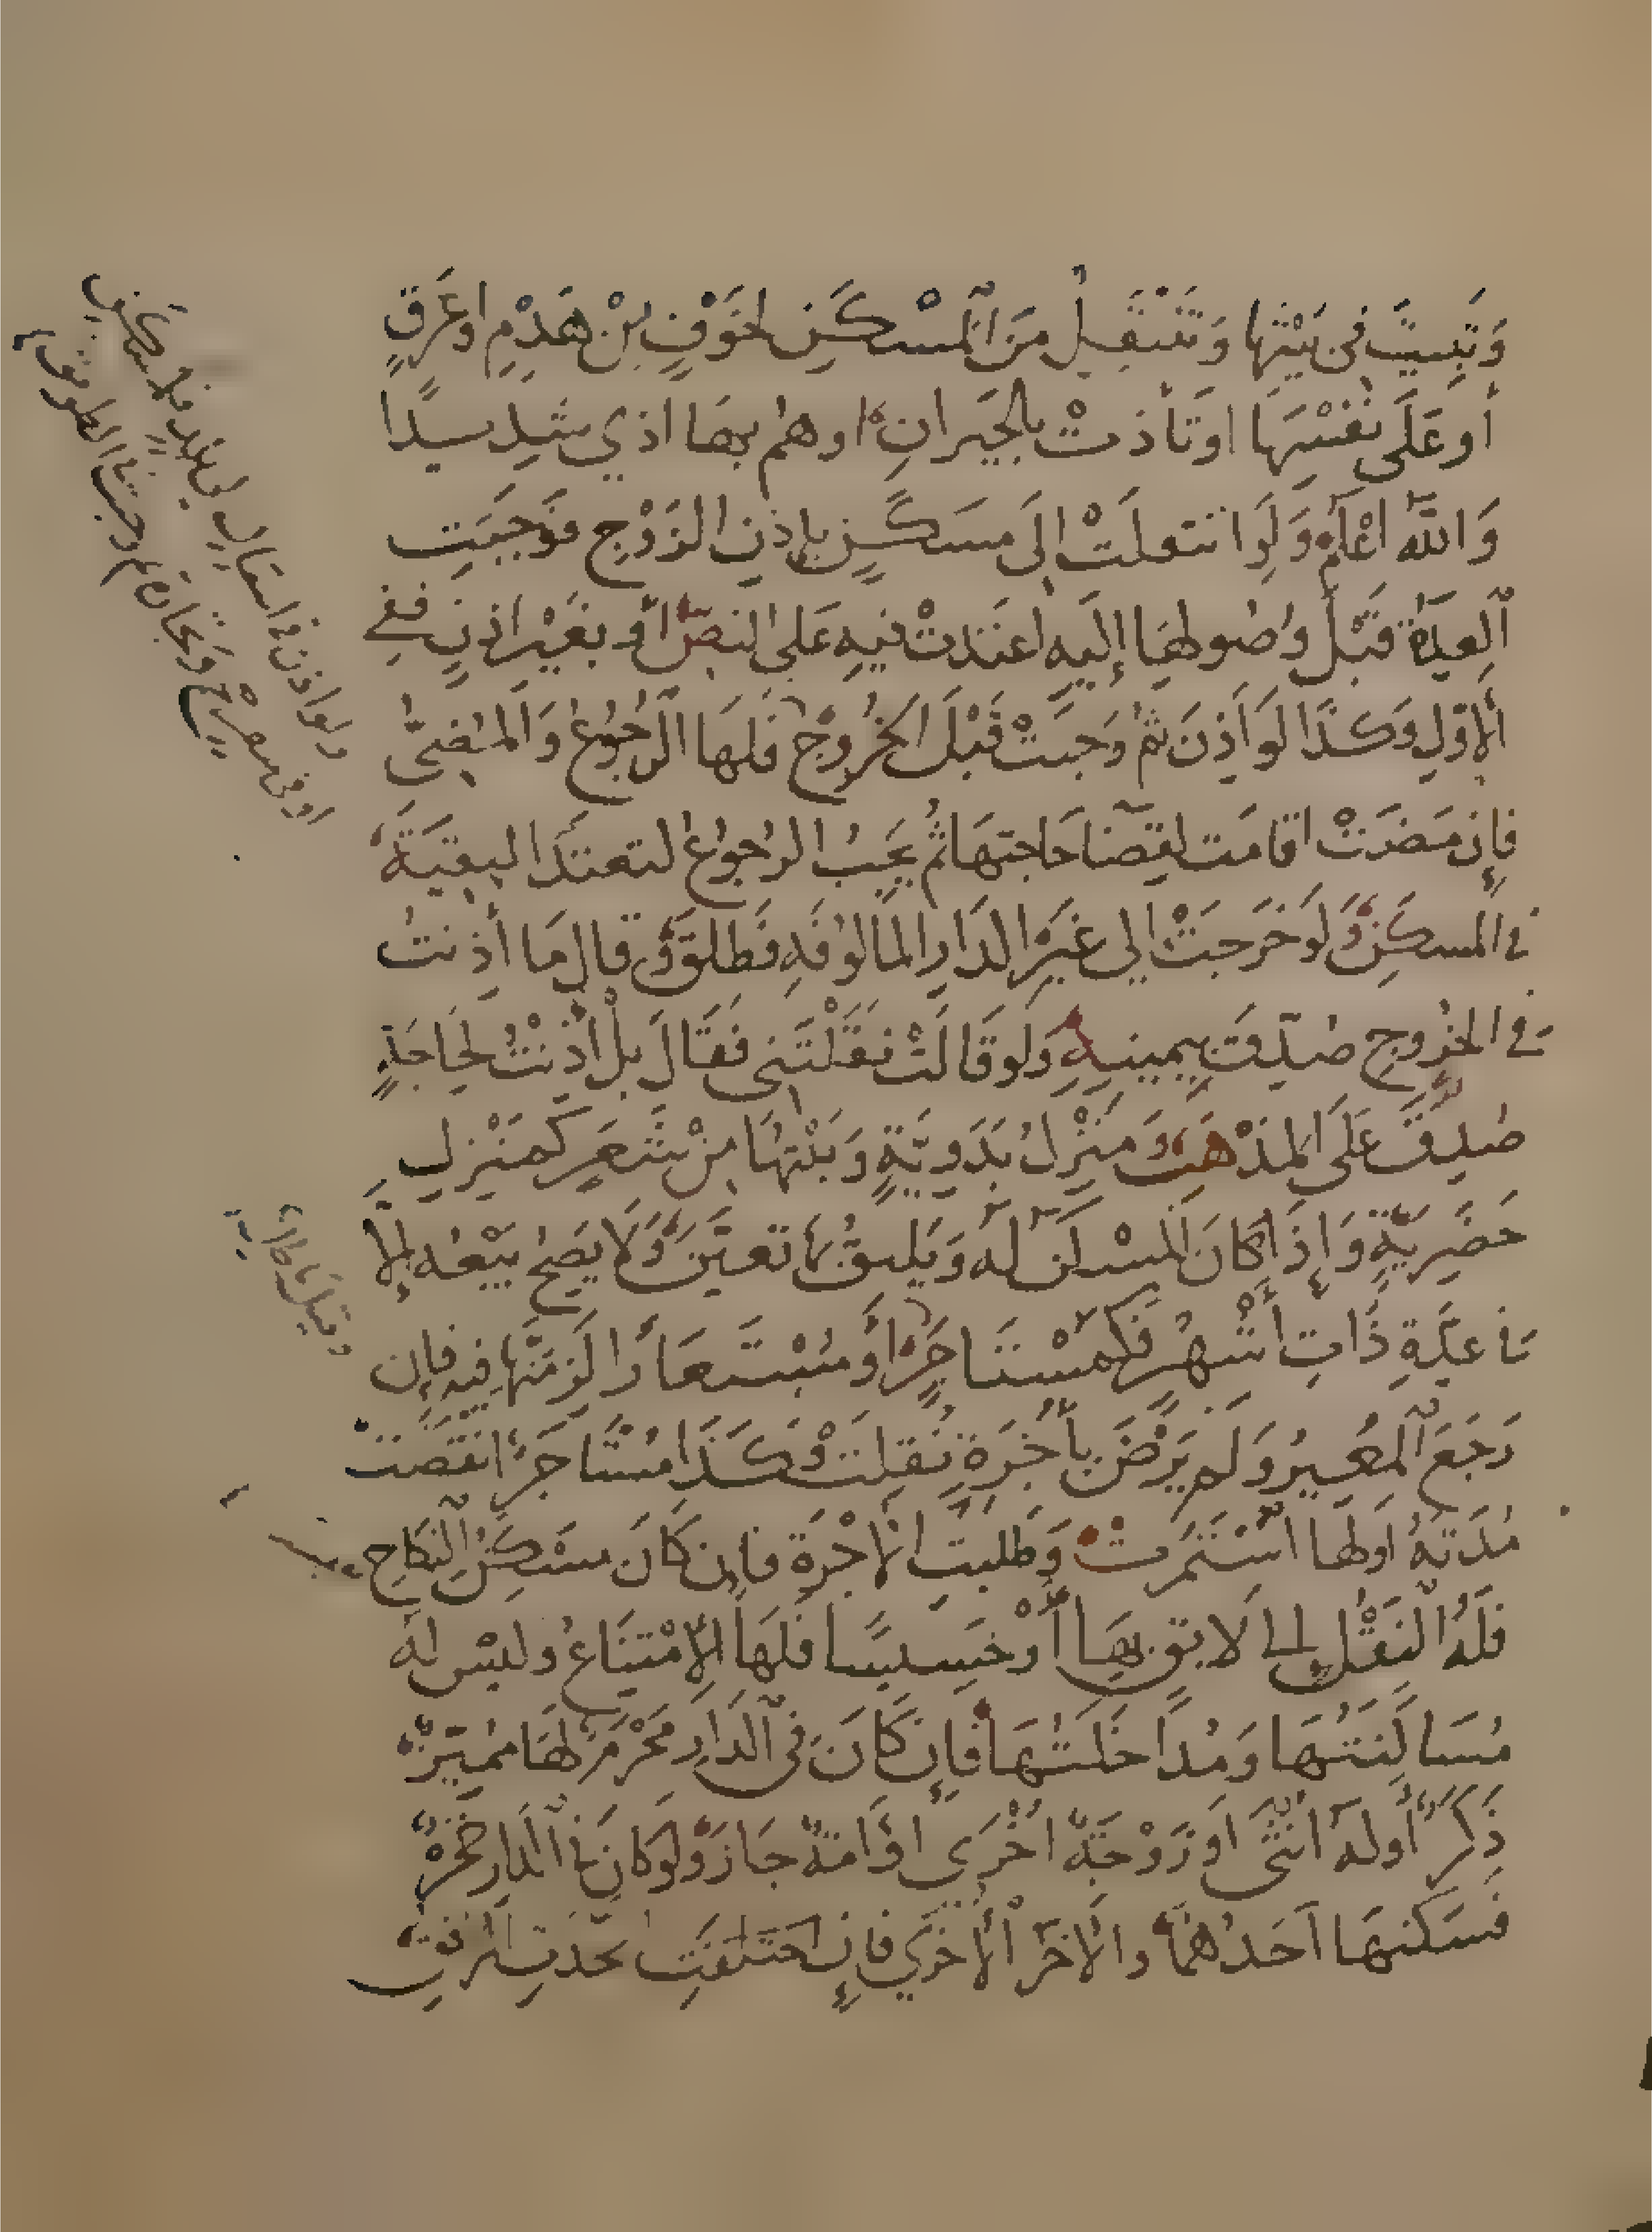 وَتَبِيتَ فِي بَيْتِهَا وَتَنْتَقِلُ مِنَ الْمَسْكَنِ لِخَوْفٍ مِنْ هَدْمٍ اوْ غَرَقٍ
أو عَلَى نَفْسِهَا اوتَأذتْ بالجِيَرانِ او هُم بهَا اذي شَدِيدًا
وَاللهُ اعْلَمُ وَلَوِ انتقلَتْ إلَى مسَكَنٍ بإذنِ الزَوْجِ فوَجَبَتِ
الْعِدَّةُ قَبْلَ وُصُولِهَا إلَيهِ اعتَدتْ فيهِ عَلى النصِّ أَو بغَيْرِ اذنٍ ففي
الأوّلِ وَكَذَا لَو أَذِنَ ثُمَّ وَجَبَتْ قَبْلَ الخُرُوجِ فَلَهَا الرُجُوعُ وَالْمُضِيُّ
فإن مَضَتْ اقامَت لقضَا حَاجتهَا ثُمَّ يَجِبُ الرُجوعُ لتعتَدَّ البقيَةَ
في المسكَنِ وَلَو خَرَجَتْ إلى غَيرِ الدَارِ المَالوفَةِ فَطلقَ وَقال مَا أَذِنتُ
في الخُرُوجِ صُدِّقَ بيَمينِهِ وَلَو قَالَتْ نَقَلْتَنِي فَقَالَ بلْ أَذِنْتُ لِحَاجَةٍ
صُدِقَ عَلَى المذْهَبِ وَمَنْزِلُ بَدَوِيَّةٍ وَبَيْتُهَا مِنْ شَعَرٍ كمَنْزِلِ
حَضَرِيّةٍ وَإِذَا كَانَ المَسْكَنُ لَهُ وَيَليقُ بهَا تعيَّنَ وَلَا يَصِحُّ بَيْعُهُ إلاّ
في عدّةِ ذَاتِ أشهُرٍ فَكمُسْتَاجَرٍ أَو مُسْتَعَارًا لَزِمَتْهَا فيهِ فإن
رَجَعَ المُعيرُ وَلم يَرْضَ بأُجْرَةٍ نُقِلَتْ وَكَذَا مُسْتَاجَرٌ انقَضَتْ
مُدَتُهُ اولَهَا اسْتَمَرتْ وَطَلَبَتِ الأُجْرَةَ فإن كَانَ مسْكَنُ النكَاحِ
فَلَهُ النَقْلُ إلى لَايقٍ بهَا أَوْ خَسِيسًا فَلَهَا الِامْتِنَاعُ وليْسَ لهُ
مُسَاكَنَتُهَا وَمُدَاخَلَتُهَا فَإن كَانَ في الدَارِ مَحْرَمٌ لَهَا مُميّزٌ
ذَكَرٌ أولَهُ انْثَى او زَوْجَةٌ اخْرَى أوْ امَةٌ جَازَ وَلَوْ كَانَ في الدَارِ حُجْرَةٌ
فسَكنهَا أحَدُهُمَا والآخَرُ الأُخْرَي فإن